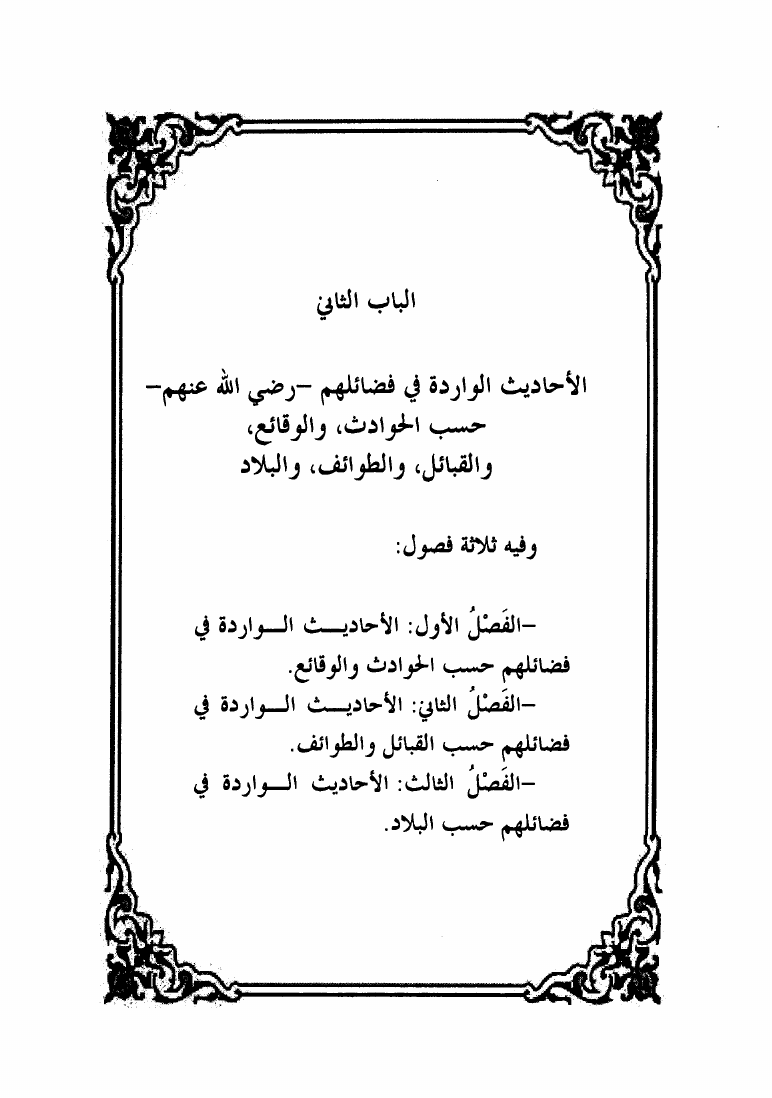 الباب الثاني
الأحاديث الواردة في فضائلهم -رضي الله عنهم-
حسب الحوادث، والوقائع،
والقبائل، والطوائف، والبلاد
وفيه ثلاثة فصول:
-الفَصْلُ الأول: الأحاديث الواردة في
فضائلهم حسب الحوادث والوقائع.
-الفَصْلُ الثاني: الأحاديث الواردة في
فضائلهم حسب القبائل والطوائف.
-الفَصْلُ الثالث: الأحاديث الواردة في
فضائلهم حسب البلاد.